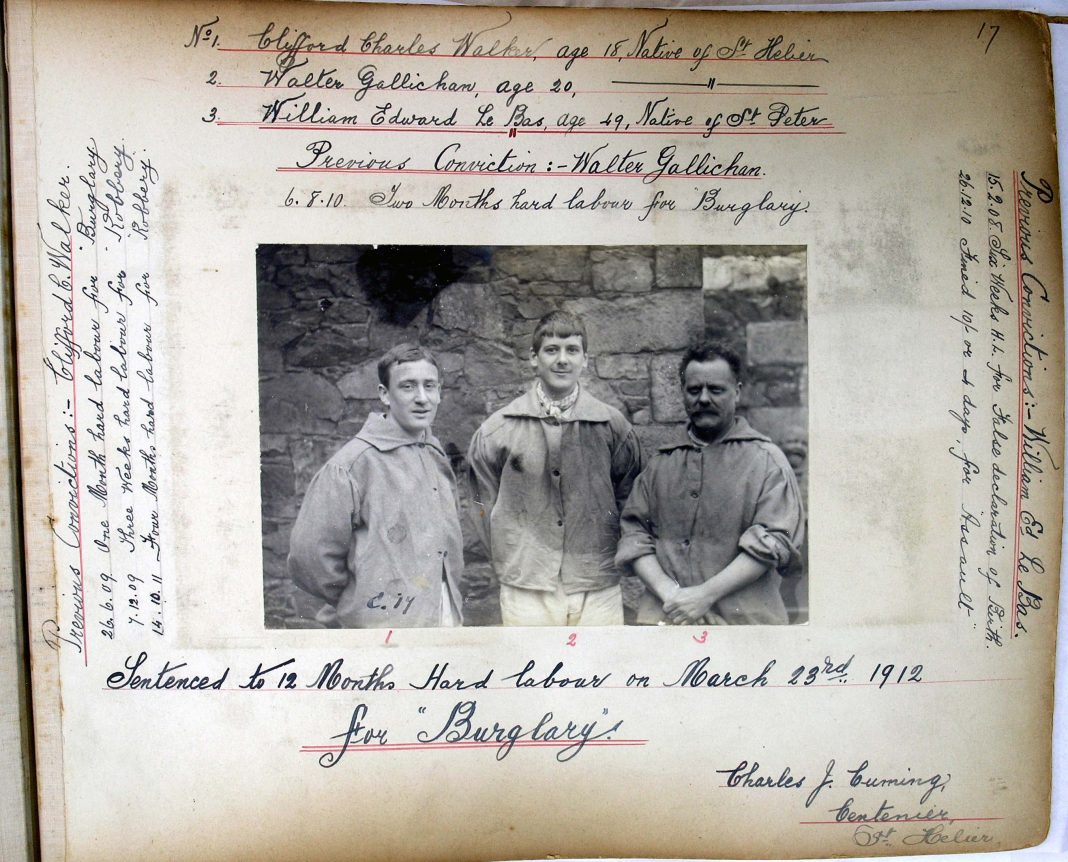 17
No 1. Clifford Charles Walker, age 18, Native of St Helier
2. Walter Gallichan, age 20, ——〃——
3. William Edward Le Bas, age 49, Native of St Peter
Previous Conviction :- Walter Gallichan.
6.8.10. Two Months hard labour for Burglary.
Previous Convictions :- Clifford C. Walker.
26.6.09 One Month hard labour for "Burglary
7.12.09 Three Weeks hard labour for "Robbery.
14.10.11 Four Months hard labour for Robbery.
Previous Convictions :- William Ed Le Bas.
15.2.08. Six Weeks H.L. for False declaration of Birth.
26.12.10 Fined 10/- or 4 days, for "Assault"
C. 17
1 2 3
Sentenced to 12 Months Hard labour on March 23rd. 1912
for "Burglary".
Charles J. Cuming,
Centenier,
St. Helier